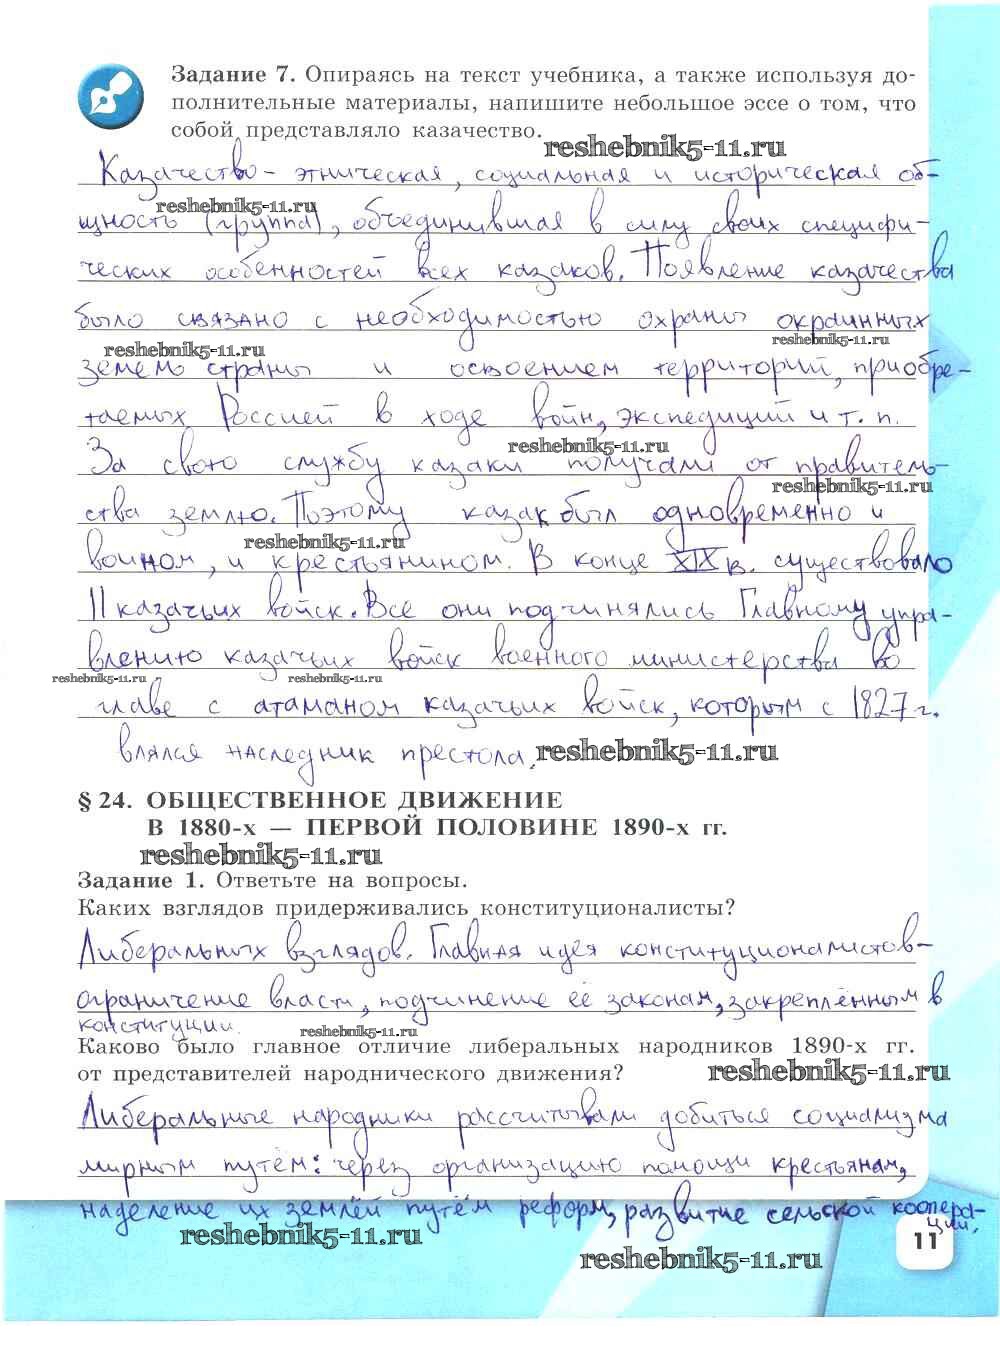 Задание 7. Опираясь на текст учебника, а также используя до-
полнительные материалы, напишите небольшое эссе о том, что
собой представляло казачество.
reshebnik5-11.ru
Казачество - этническая, социальная и историческая об-
reshebnik5-11.ru
щность (группа), объединившая в силу своих специфи-
ческих особенностей всех казаков. Появление казачества
было связано с необходимостью охраны окраинных
reshebnik5-11.ru
reshebnik5-11.ru
земель страны и освоением территорий, приобре-
таемых Россией в ходе войн, экспедиций и т. п.
reshebnik5-11.ru
За свою службу казаки получали от правитель-
reshebnik5-11.ru
ства землю. Поэтому казак был одновременно и
reshebnik5-11.ru
воином, и крестьянином. В конце XIX в. существовало
11 казачьих войск. Все они подчинялись Главному упра-
влению казачьих войск военного министерства во
reshebnik5-11.ru
reshebnik5-11.ru
главе с атаманом казачьих войск, которым с 1827 г.
влялся наследник престола.
reshebnik5-11.ru
§ 24. ОБЩЕСТВЕННОЕ ДВИЖЕНИЕ
В 1880-х — ПЕРВОЙ ПОЛОВИНЕ 1890-х гг.
reshebnik5-11.ru
Задание 1. Ответьте на вопросы.
Каких взглядов придерживались конституционалисты?
Либеральных взглядов. Главная идея конституционалистов-
ограничение власти, подчинение её законам, закреплённым в
конституции.
reshebnik5-11.ru
Каково было главное отличие либеральных народников 1890-х гг.
от представителей народнического движения?
reshebnik5-11.ru
Либеральные народники рассчитывали добиться социализма
мирным путём: через организацию помощи крестьянам,
наделение их землёй путём реформ, развитие сельской коопера-
ции.
reshebnik5-11.ru
11
reshebnik5-11.ru